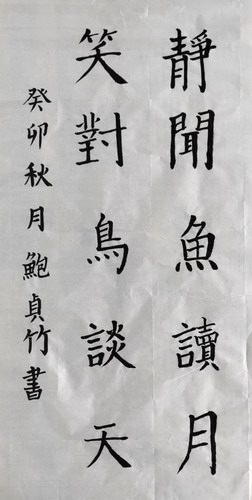 靜聞魚讀月
笑對鳥談天
癸卯秋月鮑貞竹書